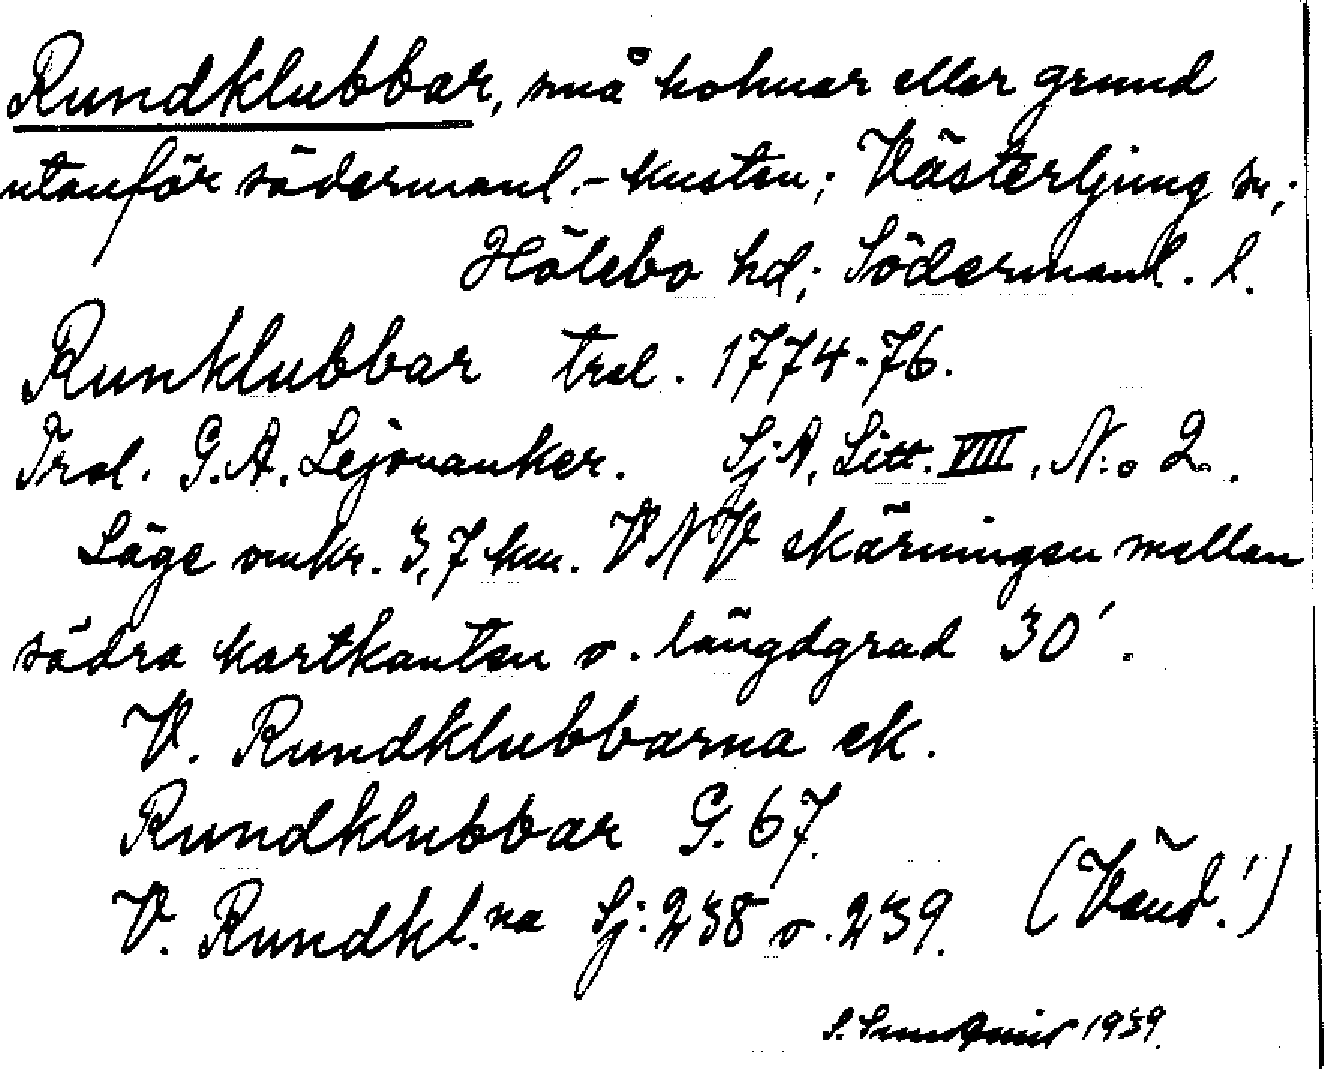 Rundklubbar, små holmar eller grund
utanför södermanl.-kusten; Västerljung sn;
Hölebo hd; Södermanl. l.
Runklubbar trol. 1774-76.
Trol. G. A. Lejonanker. Sj. A, Litt. VIII, N:o 2.
Läge omkr. 3,7 km. VNV skärningen mellan
södra kartkanten o. längdgrad 30'.
V. Rundklubbarna ek.
Rundklubbar G. 67.
V. Rundkl.na Sj: 238 o. 239. (Vänd!)
1939.